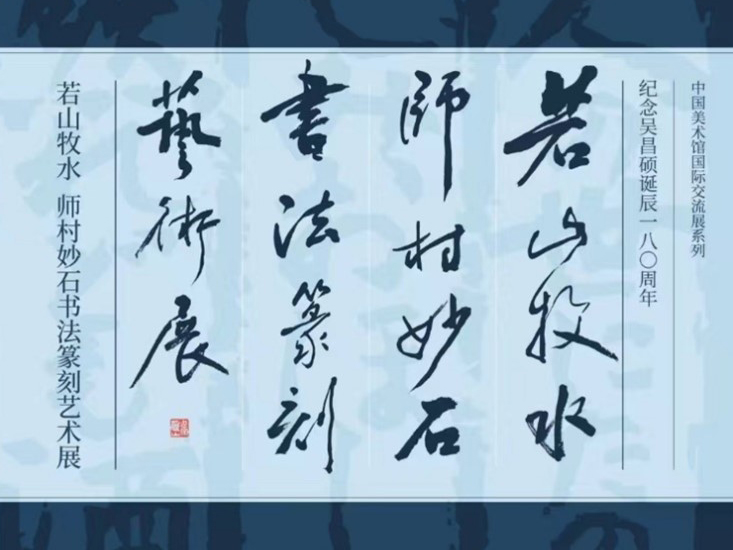 中国美术馆国际交流展系列
纪念吴昌硕诞辰一八〇周年
若山牧水
師村妙石
書法篆刻
藝術展
若山牧水 师村妙石书法篆刻艺术展